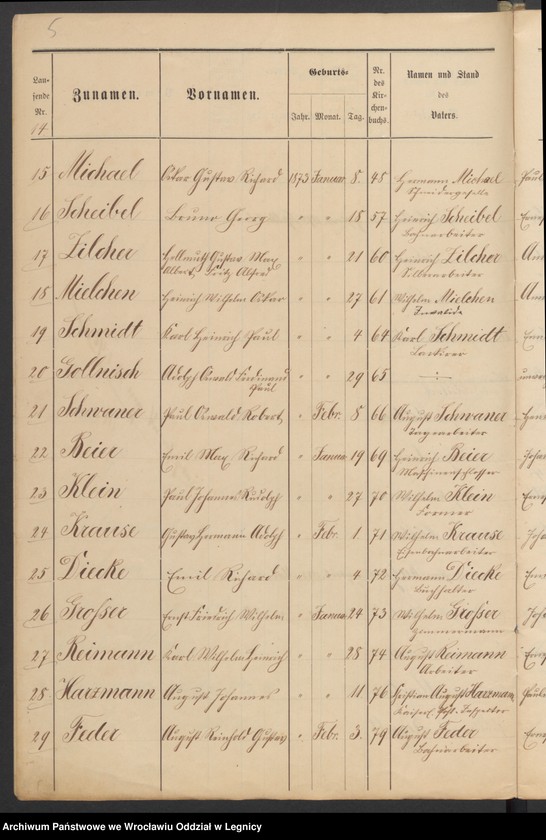 5
Lau-
fende
Nr.
Zunamen.
Vornamen.
Geburts-
Jahr. Monat. Tag.
Nr.
des
Kir-
chen-
buchs.
Namen und Stand
des
Vaters.
14
15 Michael Oskar Gustav Richard 1873 Januar 8. 48 Hermann Michael
Schneidergeselle
16 Scheibel Bruno Georg " " 18 57 Heinrich Scheibel
Bahnarbeiter
17 Zilcher Hellmuth Gustav Max " " 21 60 Heinrich Zilcher
Albert Fritz Alfred
Silberarbeiter
18 Mielchen Heinrich Wilhelm Oskar " " 27 61 Wilhelm Mielchen
Invalide
19 Schmidt Karl Heinrich Paul " " 4 64 Karl Schmidt
Lackirer
20 Gollnisch Adolph Oswald Ferdinand " " 29 65 -:-
Paul
21 Schwaner Paul Oswald Robert " Febr. 8 66 August Schwaner
Tagearbeiter
22 Beier Emil Max Richard " Januar 19 69 Heinrich Beier
Maschinenschlosser
23 Klein Paul Johannes Rudolph " " 27 70 Wilhelm Klein
Former
24 Krause Gustav Hermann Adolph " Febr. 1. 71 Wilhelm Krause
Eisenbahnarbeiter
25 Diecke Emil Richard " " 4 72 Hermann Diecke
Buchhalter
26 Großer Ernst Friedrich Wilhelm " Januar 24 73 Wilhelm Großer
Zimmermann
27 Reimann Karl Wilhelm Heinrich " " 28 74 August Reimann
Arbeiter
28 Harzmann August Johannes " " 11 76 Christian August Harzmann
Kaiserl. Post.
29 Feder August Reinhold Gustav " Febr. 3. 79 August Feder
Bahnarbeiter
Archiwum Państwowe we Wrocławiu Oddział w Legnicy